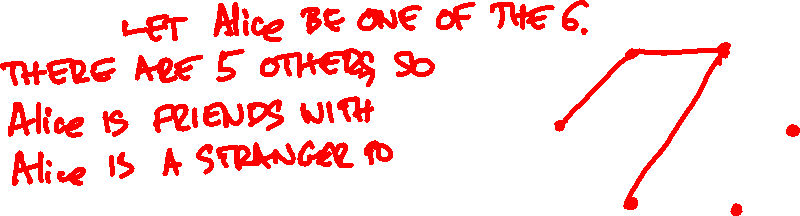 LET Alice BE ONE OF THE 6.
THERE ARE 5 OTHERS, SO
Alice IS FRIENDS WITH
Alice IS A STRANGER TO